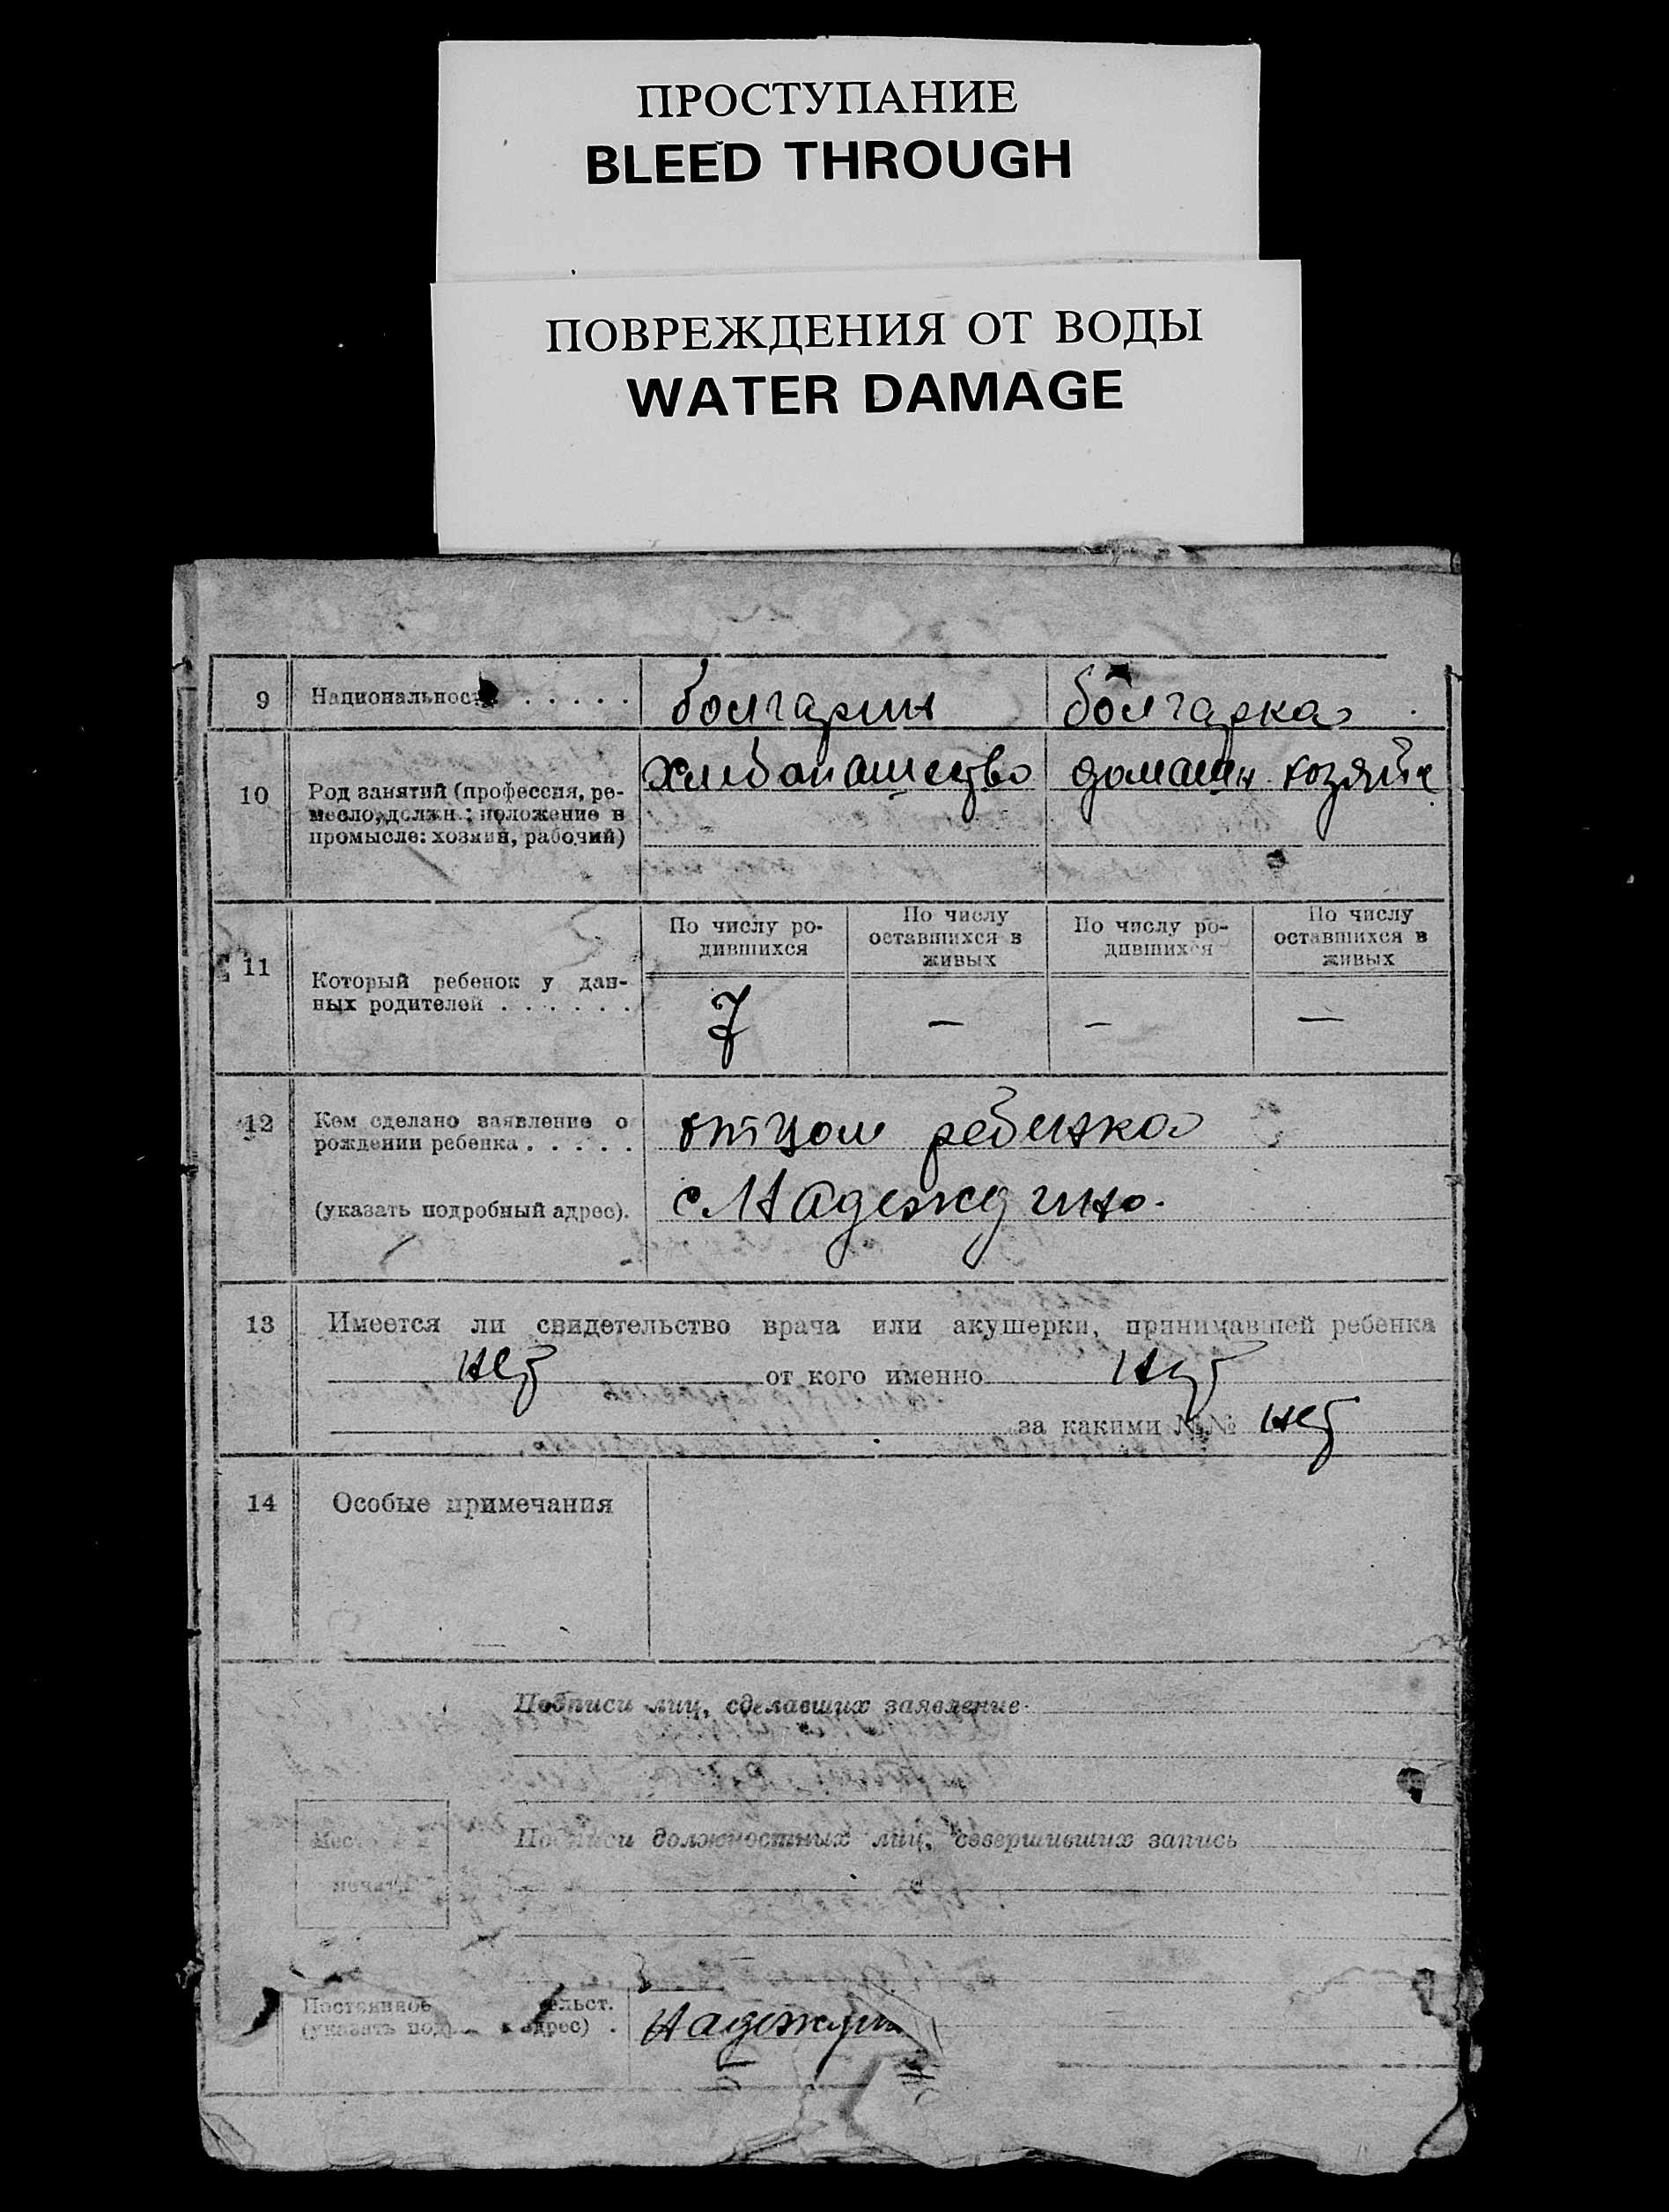 ПРОСТУПАНИЕ
BLEED THROUGH
ПОВРЕЖДЕНИЯ ОТ ВОДЫ
WATER DAMAGE
9 Национальност . . . . . болгарин болгарка
10 Род занятий (профессия, ре-
месло, должн.; положение в
промысле: хозяин, рабочий)
хлебопашество домашн. хозяйк
11 Который ребенок у дан-
ных родителей . . . . . .
По числу ро-
дившихся
По числу
оставшихся в
живых
По числу ро-
дившихся
По числу
оставшихся в
живых
7 — — —
12 Кем сделано заявление о
рождении ребенка . . . . .
отцом ребенка
(указать подробный адрес).
с Надеждино.
13 Имеется ли свидетельство врача или акушерки, принимавшей ребенка
нет от кого именно нет
за какими №№ нет
14 Особые примечания
Подписи лиц, сделавших заявление
Мест
печати
Подписи должностных лиц, совершивших запись
Постоянное ельст.
(указать под адрес) .